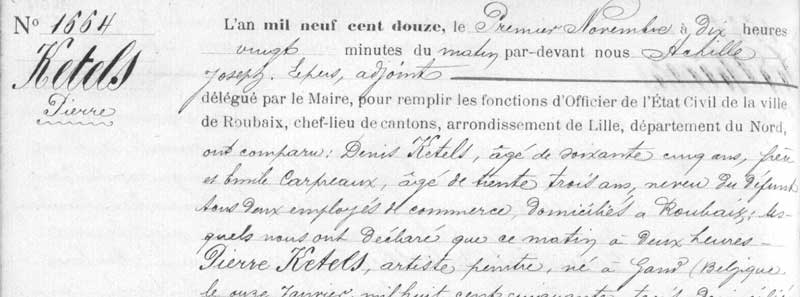 N° 1664
Ketels
Pierre
L'an mil neuf cent douze, le Premier Novembre à Dix heures
vingt minutes du matin par-devant nous Achille
Joseph Lepers, adjoint
délégué par le Maire, pour remplir les fonctions d'Officier de l'État Civil de la ville
de Roubaix, chef-lieu de cantons, arrondissement de Lille, département du Nord,
ont comparu: Denis Ketels, âgé de soixante cinq ans, frère
et Emile Carpreaux, âgé de trente trois ans, neveu du défunt
tous deux employés de commerce, domiciliés à Roubaix; les-
quels nous ont déclaré que ce matin à deux heures
Pierre Ketels, artiste peintre, né à Gand (Belgique
le onze Janvier mil huit cent cinquante